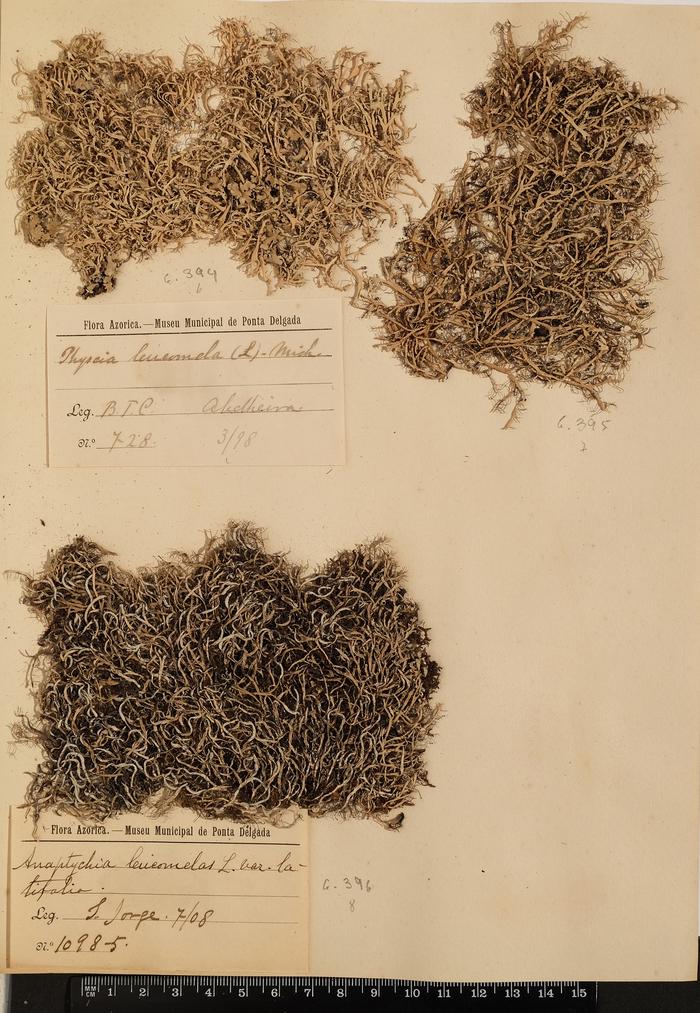 G. 394
6
Flora Azorica.—Museu Municipal de Ponta Delgada
Physcia leucomela (L) - Mich.
Leg. B.T.C. Abelheira
N.º 728. 3/98
G. 395
7
Flora Azorica.—Museu Municipal de Ponta Delgada
Anaptychia leucomelas L. var. la-
tifolia.
Leg. S. Jorge. 7/08
N.º 1098-5.
G. 396
8
MM
CM 1 2 3 4 5 6 7 8 9 10 11 12 13 14 15